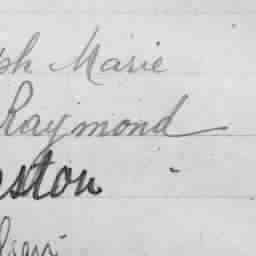 ph Marie
Raymond
ston